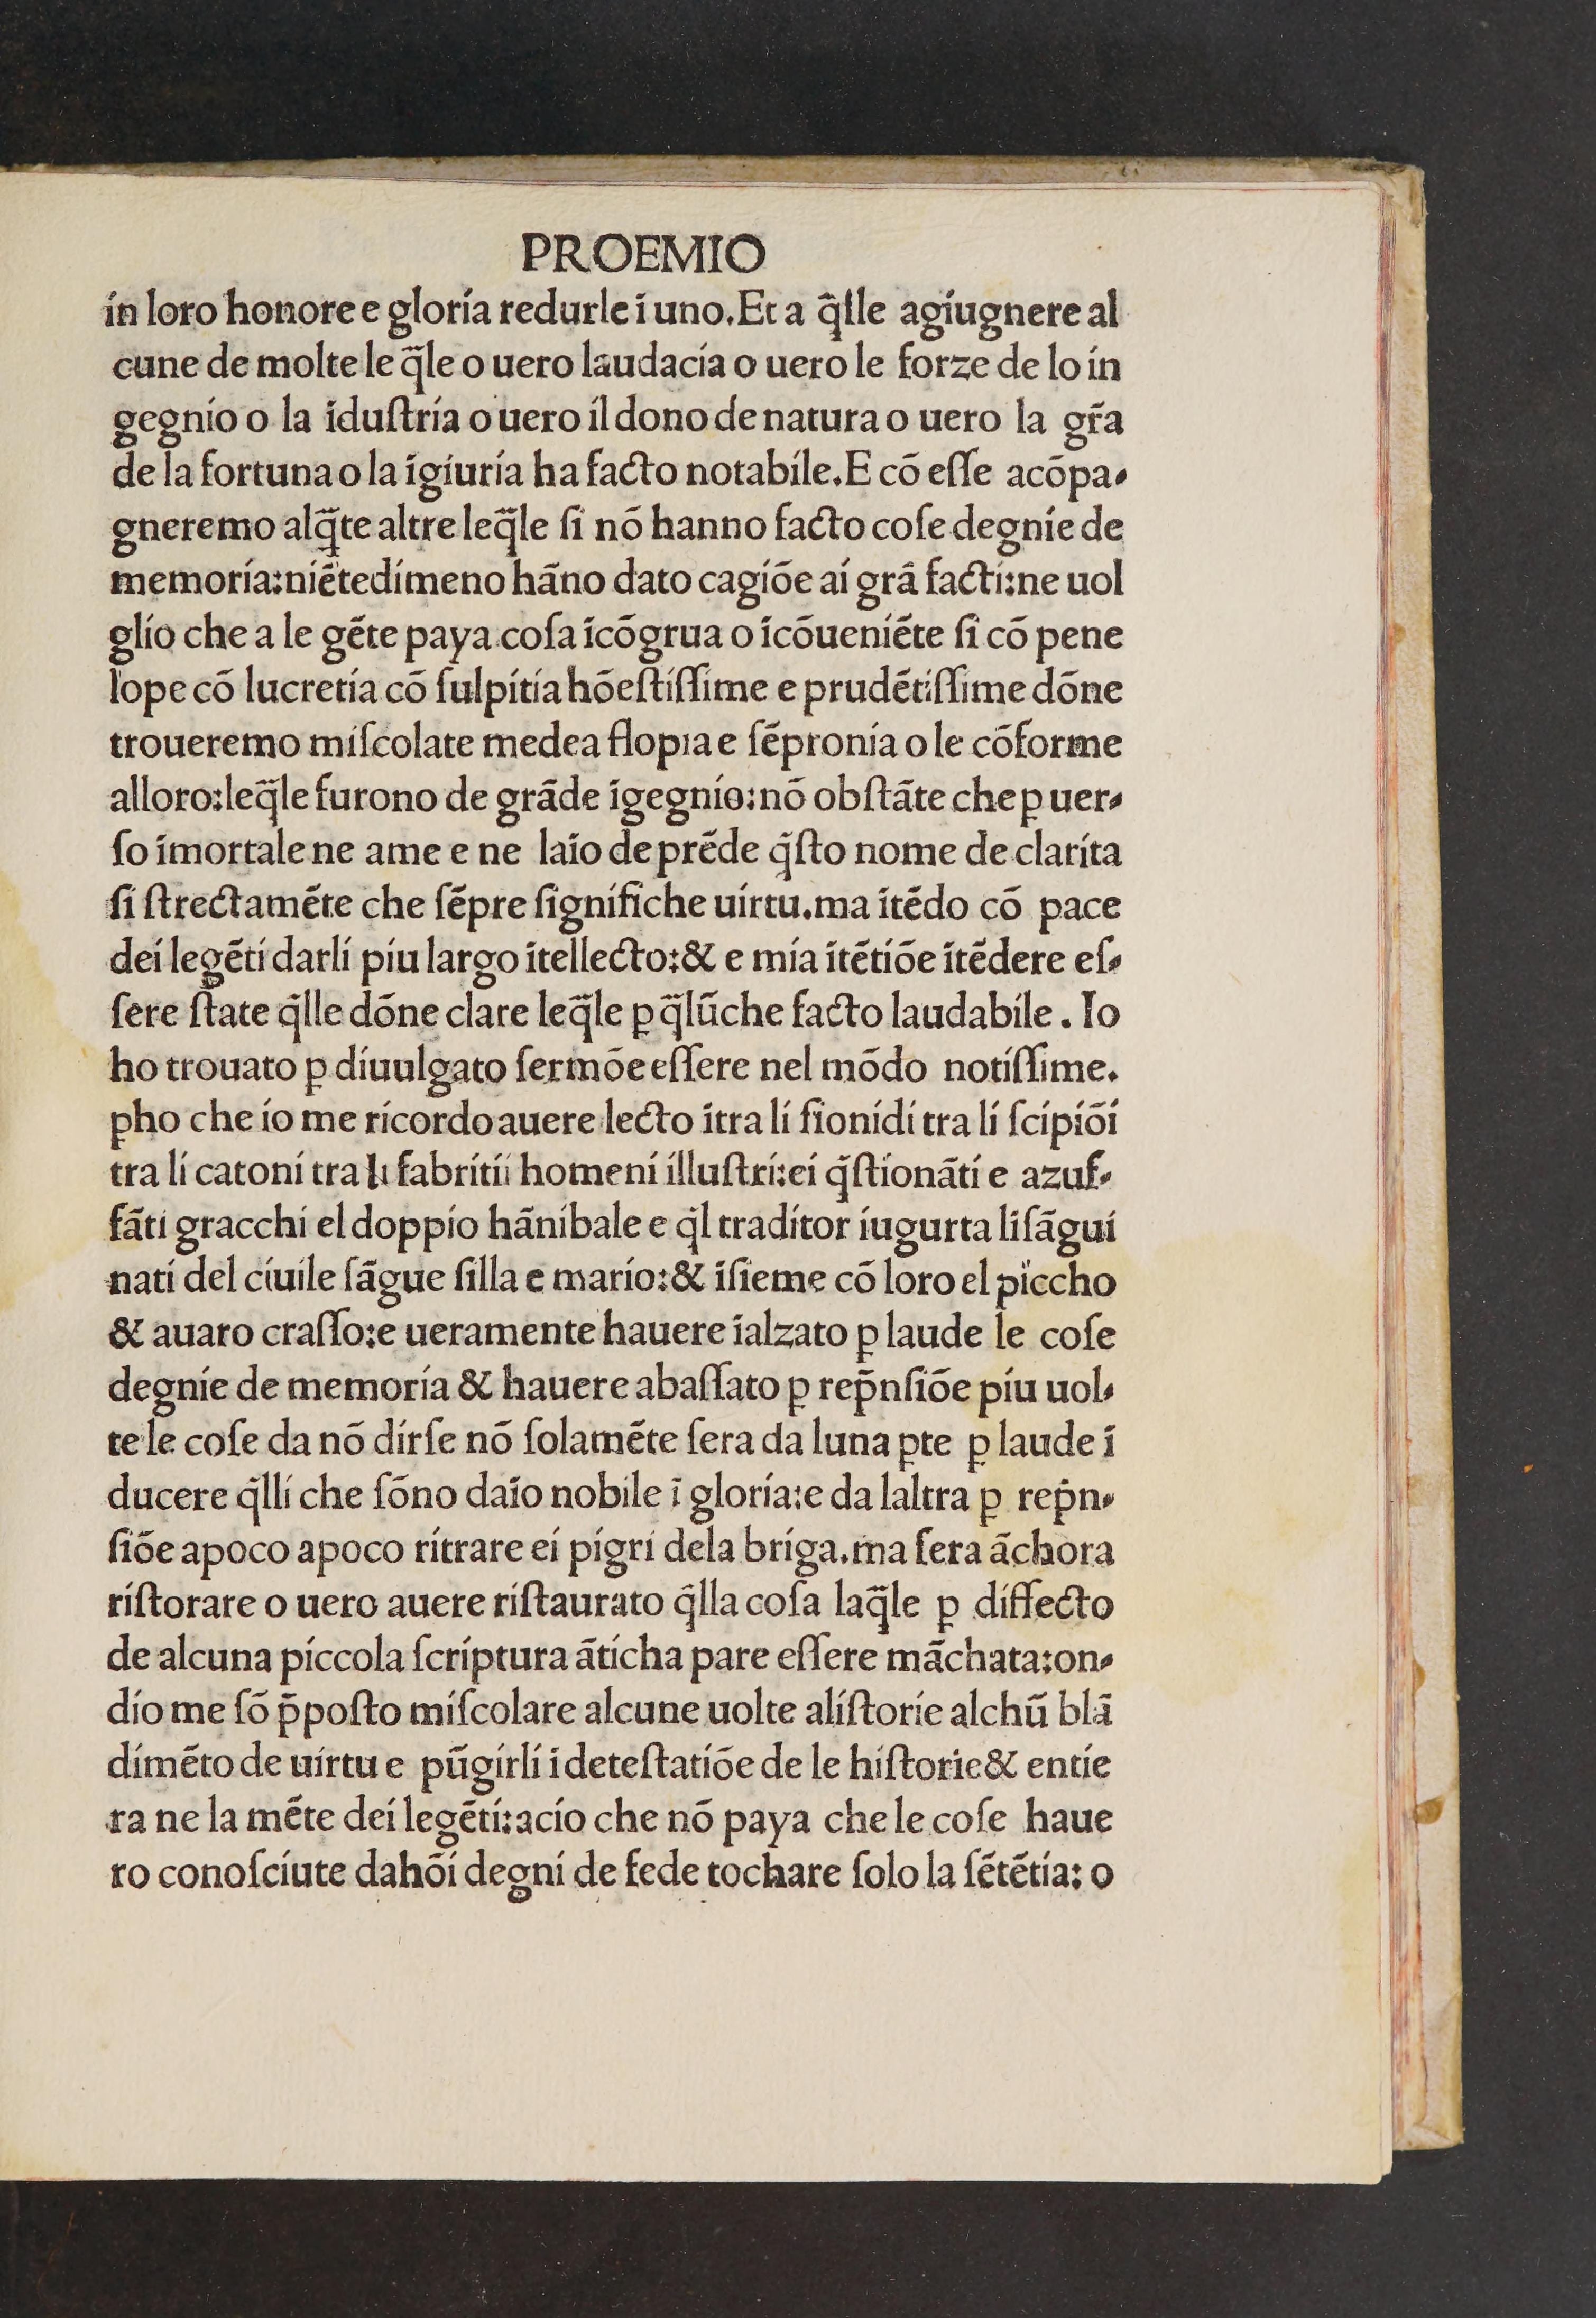 PROEMIO
in loro honore e gloria redurle ĩ uno.Et a q̃lle agiugnere al
cune de molte le q̃le o uero laudacia o uero le forze de lo in
gegnio o la ĩduſtria o uero il dono de natura o uero la gr̃a
de la fortuna o la ĩgiuria ha facto notabile.E cõ eſſe acõpa⸗
gneremo alq̃te altre leq̃le ſi nõ hanno facto coſe degnie de
memoria:niẽtedimeno hãno dato cagiõe ai grã facti:ne uol
glio che a le gẽte paya coſa ĩcõgrua o ĩcõueniẽte ſi cõ pene
lope cõ lucretia cõ ſulpitia hõeſtiſſime e prudẽtiſſime dõne
troueremo miſcolate medea flopia e ſẽpronia o le cõforme
alloro:leq̃le furono de grãde ĩgegnio:nõ obſtãte che ꝑ uer⸗
ſo ĩmortale ne ame e ne laĩo de prẽde q̃ſto nome de clarita
ſi ſtrectamẽte che ſẽpre ſignifiche uirtu.ma ĩtẽdo cõ pace
dei legẽti darli piu largo ĩtellecto:& e mia ĩtẽtiõe ĩtẽdere eſ⸗
ſere ſtate q̃lle dõne clare leq̃le ꝑ q̃lũche facto laudabile . Io
ho trouato ꝑ diuulgato ſermõe eſſere nel mõdo notiſſime.
ꝑho che io me ricordo auere lecto ĩtra li ſionidi tra li ſcipiõi
tra li catoni tra li fabritii homeni illuſtri:ei q̃ſtionãti e azuf⸗
fãti gracchi el doppio hãnibale e q̃l traditor iugurta li ſãgui
nati del ciuile ſãgue ſilla e mario:& ĩſieme cõ loro el piccho
& auaro craſſo:e ueramente hauere ĩalzato ꝑ laude le coſe
degnie de memoria & hauere abaſſato ꝑ rep̃nſiõe piu uol⸗
te le coſe da nõ dirſe nõ ſolamẽte ſera da luna ꝑte ꝑ laude ĩ
ducere q̃lli che ſõno daĩo nobile ĩ gloria:e da laltra ꝑ rep̃n⸗
ſiõe apoco apoco ritrare ei pigri dela briga.ma ſera ãchora
riſtorare o uero auere riſtaurato q̃lla coſa laq̃le ꝑ diffecto
de alcuna piccola ſcriptura ãticha pare eſſere mãchata:on⸗
dio me ſõ p̃poſto miſcolare alcune uolte aliſtorie alchũ blã
dimẽto de uirtu e pũgirli ĩ deteſtatiõe de le hiſtorie & entie
ra ne la mẽte dei legẽti:acio che nõ paya che le coſe haue
ro conoſciute dahõi degni de fede tochare ſolo la ſẽtẽtia: o